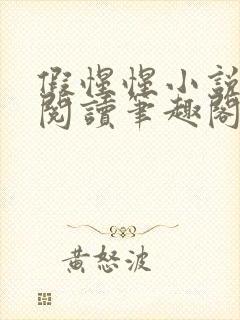 假惺惺小說
閱讀筆趣閣
黃怒波